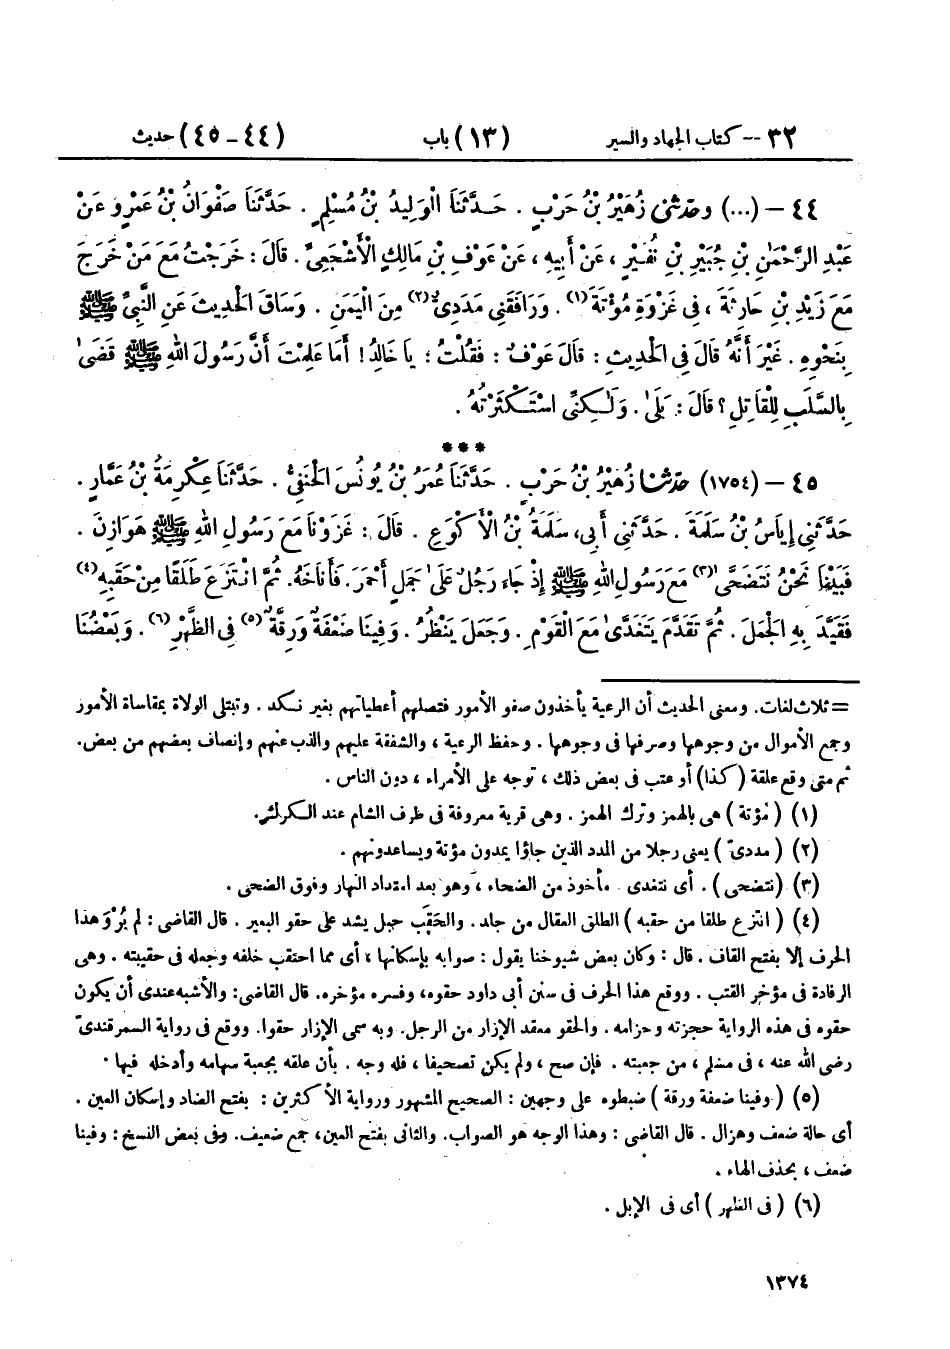 ٣٢ — كتاب الجهاد والسير (١٣) باب (٤٤ – ٤٥) حديث
٤٤ – (...) وحَدَّثَنِي زُهَيْرُ بْنُ حَرْبٍ . حَدَّثَنَا الْوَلِيدُ بْنُ مُسْلِمٍ . حَدَّثَنَا صَفْوَانُ بْنُ عَمْرٍو عَنْ
عَبْدِ الرَّحْمَٰنِ بْنِ جُبَيْرِ بْنِ نُفَيْرٍ ، عَنْ أَبِيهِ ، عَنْ عَوْفِ بْنِ مَالِكٍ الْأَشْجَعِيِّ . قَالَ : خَرَجْتُ مَعَ مَنْ خَرَجَ
مَعَ زَيْدِ بْنِ حَارِثَةَ ، فِي غَزْوَةِ مُؤْتَةَ(١) . وَرَافَقَنِي مَدَدِيٌّ(٢) مِنَ الْيَمَنِ . وَسَاقَ الْحَدِيثَ عَنِ النَّبِيِّ ﷺ
بِنَحْوِهِ . غَيْرَ أَنَّهُ قَالَ فِي الْحَدِيثِ : قَالَ عَوْفٌ : فَقُلْتُ : يَا خَالِدُ ! أَمَا عَلِمْتَ أَنَّ رَسُولَ اللهِ ﷺ قَضَىٰ
بِالسَّلَبِ لِلْقَاتِلِ ؟ قَالَ : بَلَىٰ . وَلَٰكِنِّي اسْتَكْثَرْتُهُ .
***
٤٥ – (١٧٥٤) حَدَّثَنَا زُهَيْرُ بْنُ حَرْبٍ . حَدَّثَنَا عُمَرُ بْنُ يُونُسَ الْحَنَفِيُّ . حَدَّثَنَا عِكْرِمَةُ بْنُ عَمَّارٍ .
حَدَّثَنِي إِيَاسُ بْنُ سَلَمَةَ . حَدَّثَنِي أَبِي، سَلَمَةُ بْنُ الْأَكْوَعِ . قَالَ : غَزَوْنَا مَعَ رَسُولِ اللهِ ﷺ هَوَازِنَ .
فَبَيْنَا نَحْنُ نَتَضَحَّىٰ(٣) مَعَ رَسُولِ اللهِ ﷺ إِذْ جَاءَ رَجُلٌ عَلَىٰ جَمَلٍ أَحْمَرَ. فَأَنَاخَهُ. ثُمَّ انْتَزَعَ طَلَقًا مِنْ حَقَبِهِ(٤)
فَقَيَّدَ بِهِ الْجَمَلَ . ثُمَّ تَقَدَّمَ يَتَغَدَّىٰ مَعَ الْقَوْمِ . وَجَعَلَ يَنْظُرُ . وَفِينَا ضَعْفَةٌ وَرِقَّةٌ(٥) فِي الظَّهْرِ(٦) . وَبَعْضُنَا
= ثلاث لغات. ومعنى الحديث أن الرعية يأخذون صفو الأمور فتصلهم أعطياتهم بغير نكد . وتبتلى الولاة بمقاساة الأمور
وجمع الأموال من وجوهها وصرفها فى وجوهها . وحفظ الرعية ، والشفقة عليهم والذب عنهم وإنصاف بعضهم من بعض.
ثم متى وقع علقة (كذا) أو عتب فى بعض ذلك ، توجه على الأمراء ، دون الناس .
(١) (مُؤتة) هى بالهمز وترك الهمز . وهى قرية معروفة فى طرف الشام عند الكرك.
(٢) ( مددىّ ) يعنى رجلا من المدد الذين جاؤا يمدون مؤتة ويساعدونهم .
(٣) (نتضحى) . أى نتغدى . مأخوذ من الضحاء ، وهو بعد امتداد النهار وفوق الضحى .
(٤) ( انتزع طلقا من حقبه ) الطلق العقال من جلد. والحَقَب حبل يشد على حقو البعير . قال القاضى : لم يُرْوَ هذا
الحرف إلا بفتح القاف . قال : وكان بعض شيوخنا يقول : صوابه بإسكانها ، أى مما احتقب خلفه وجعله فى حقيبته . وهى
الرفادة فى مؤخر القتب . ووقع هذا الحرف فى سنن أبى داود حقوه، وفسره مؤخره. قال القاضى: والأشبه عندى أن يكون
حقوه فى هذه الرواية حجزته وحزامه . والحقو معقد الإزار من الرجل. وبه سمى الإزار حقوا. ووقع فى رواية السمرقندىّ
رضى الله عنه ، فى مسلم ، من جعبته . فإن صح ، ولم يكن تصحيفا ، فله وجه . بأن علقه بجعبة سهامه وأدخله فيها .
(٥) (وفينا ضعفة ورقة) ضبطوه على وجهين : الصحيح المشهور ورواية الأكثرين : بفتح الضاد وإسكان العين .
أى حالة ضعف وهزال . قال القاضى : وهذا الوجه هو الصواب. والثانى بفتح العين، جمع ضعيف. وفى بعض النسخ : وفينا
ضعف ، بحذف الهاء .
(٦) ( فى الظهر ) أى فى الإبل .
١٣٧٤